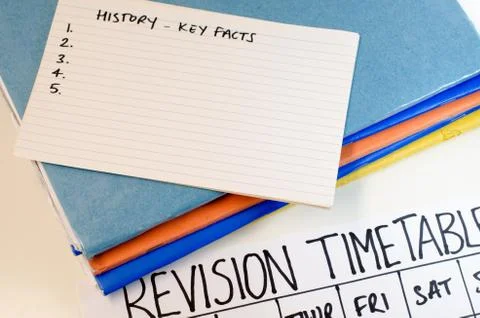 HISTORY - KEY FACTS
1.
2.
3.
4.
5.
REVISION TIMETABLE
THUR FRI SAT